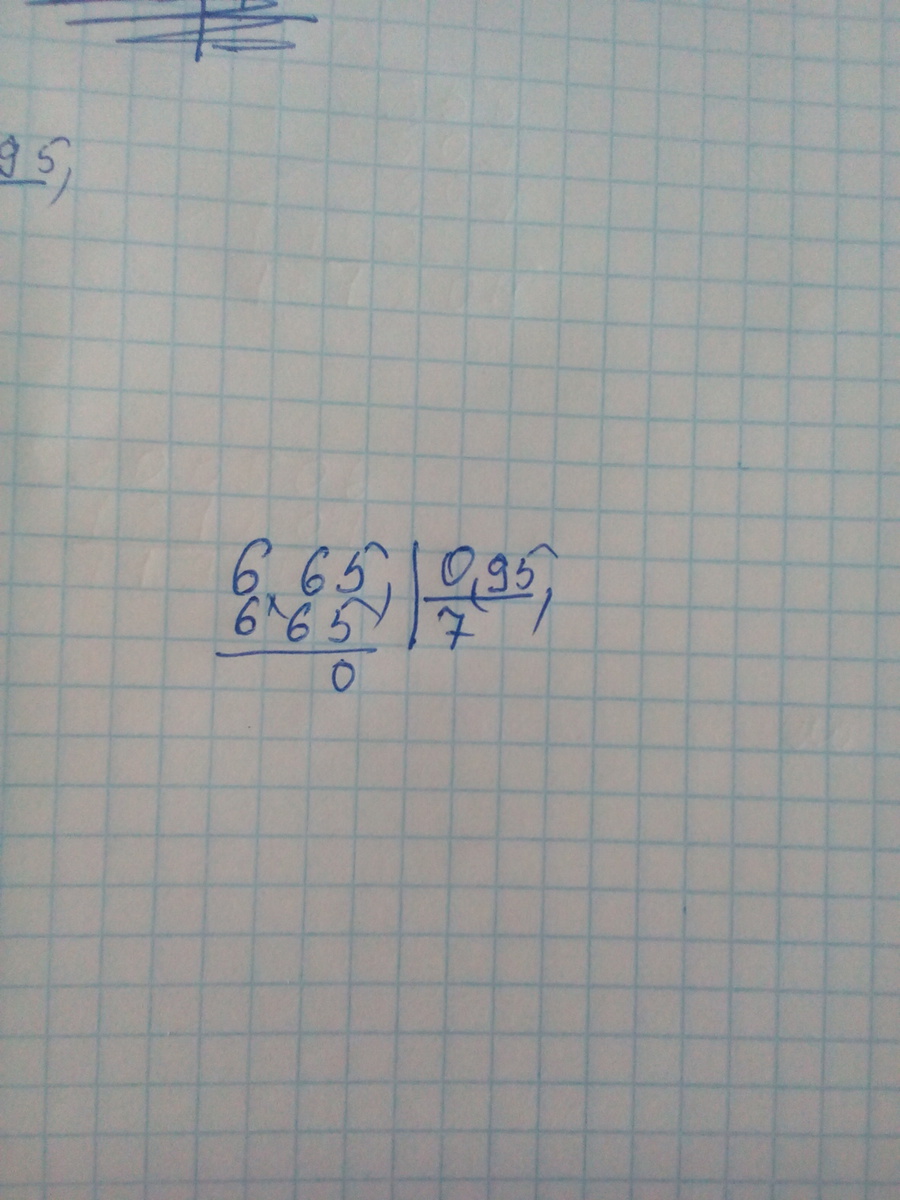 95,
6,65, | 0,95,
6,65, 7
0